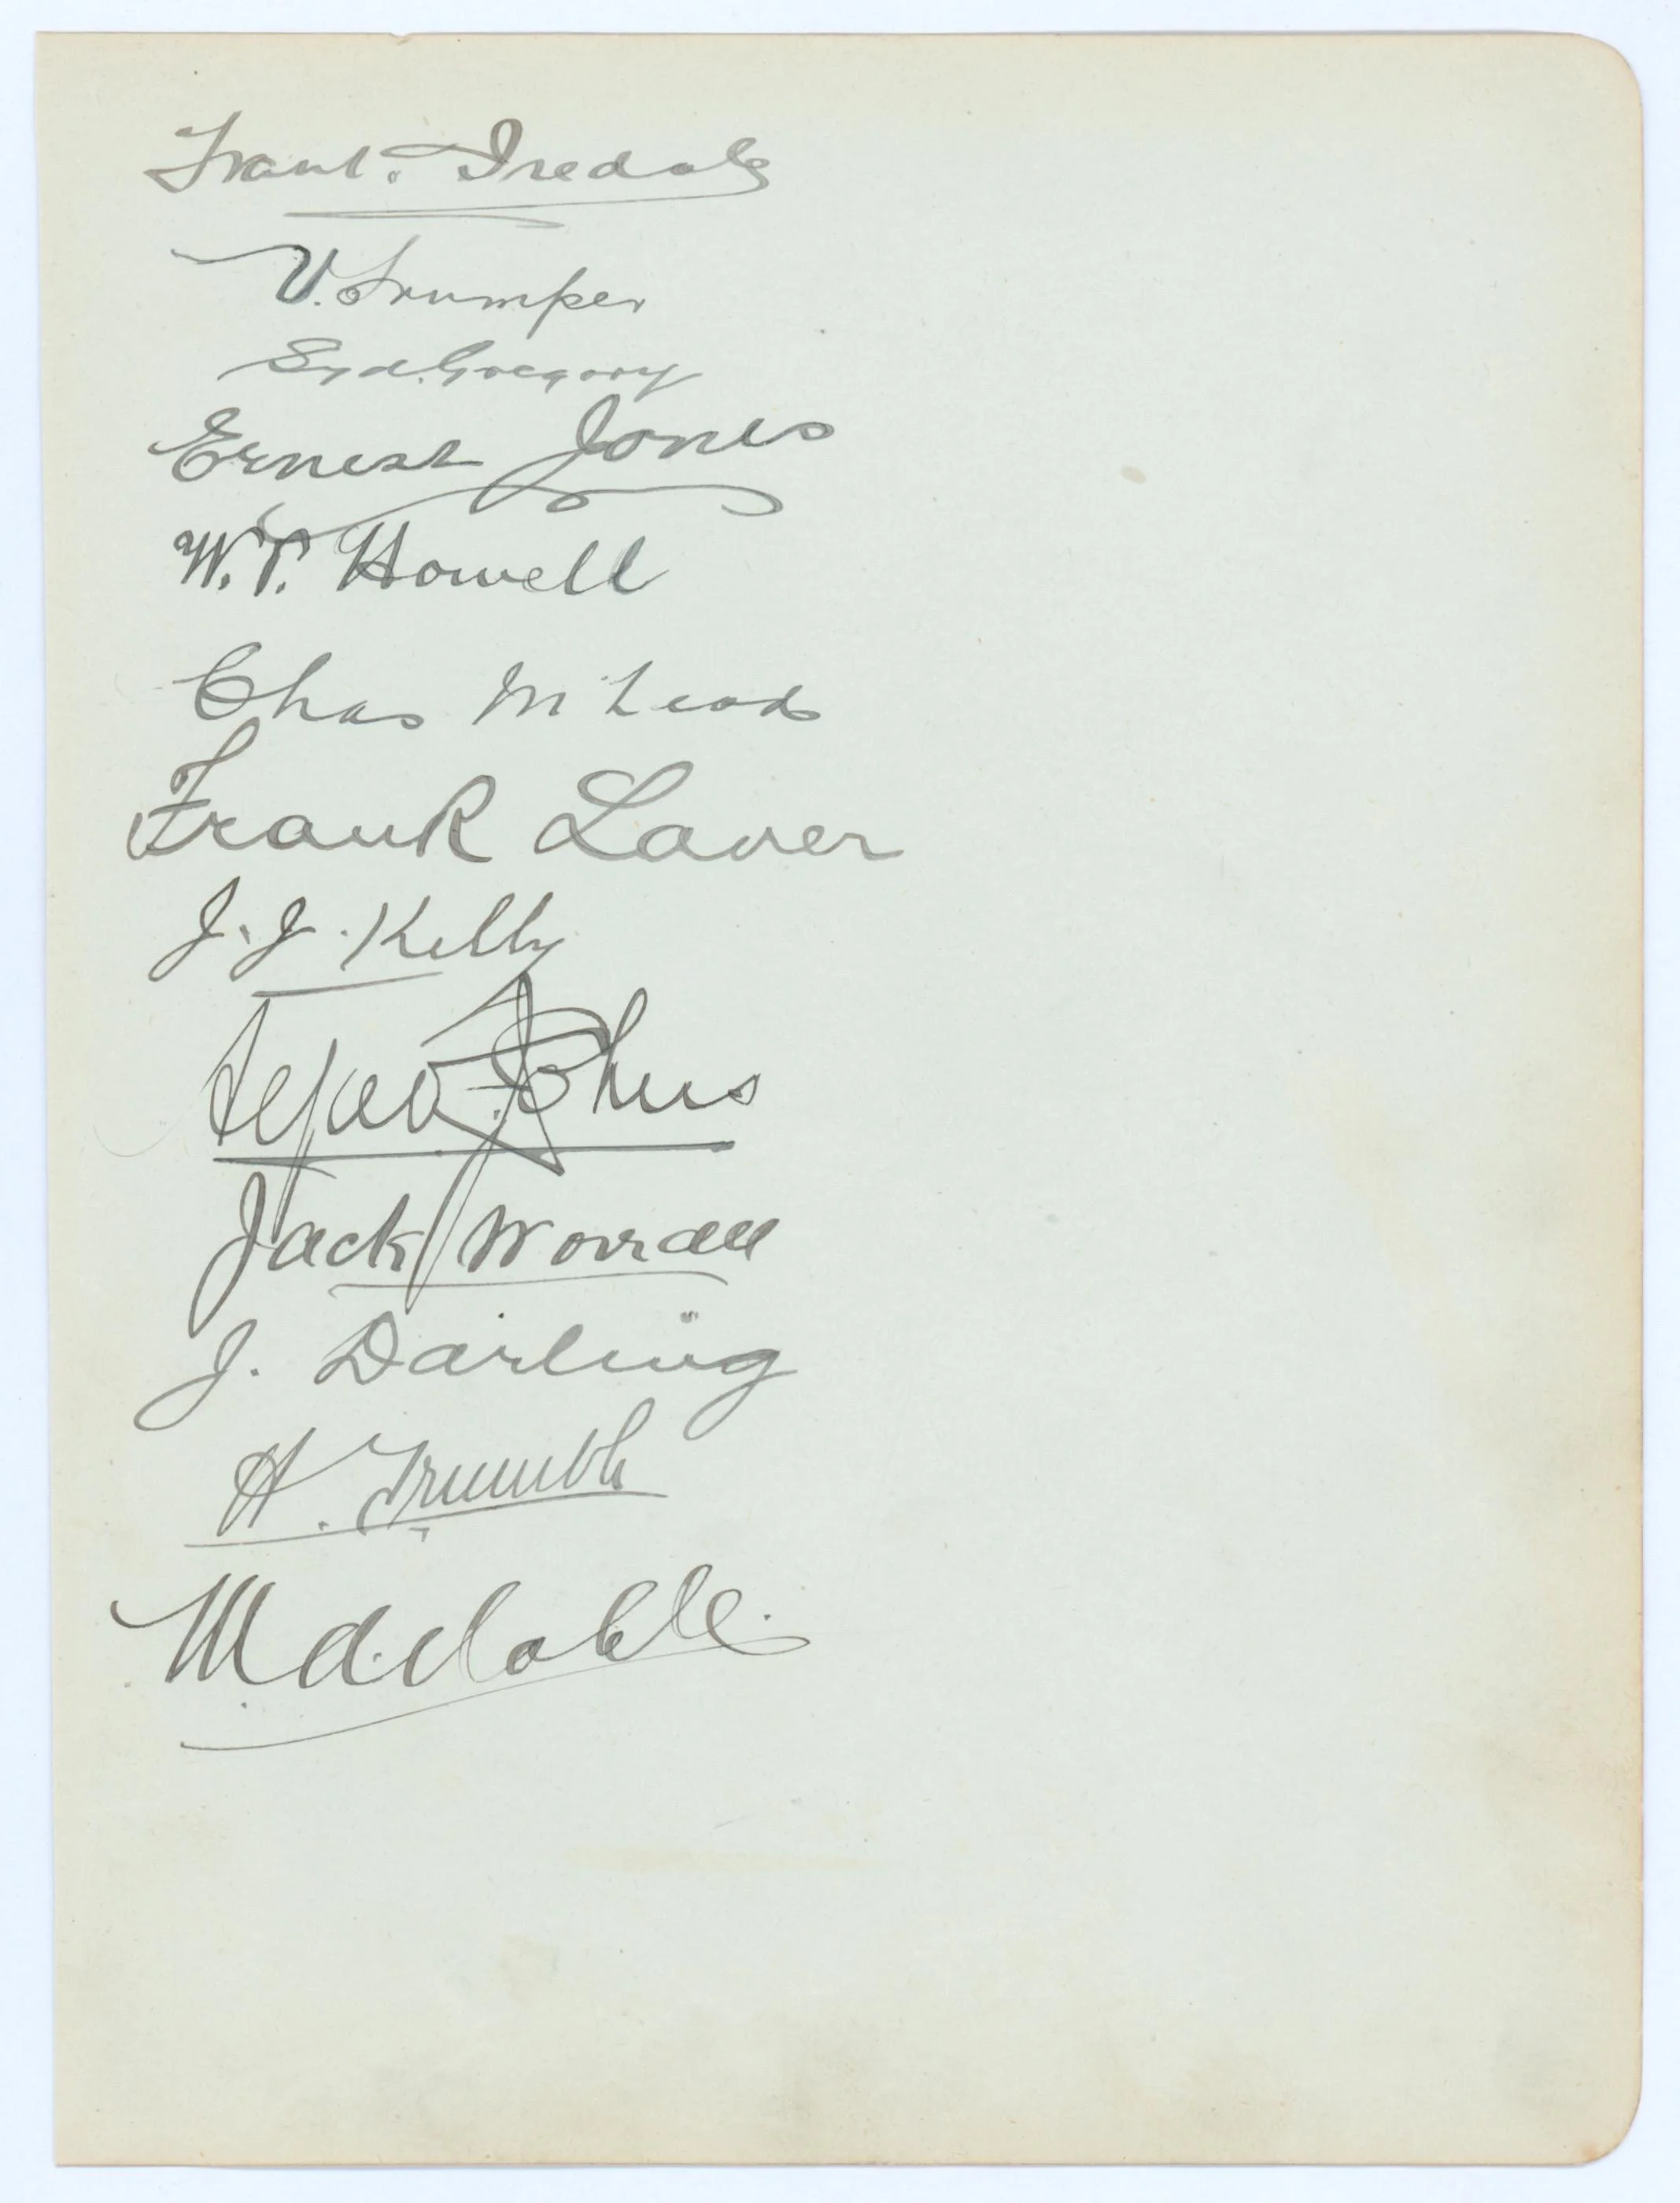 Frank. Iredale
V. Trumper
Syd. Gregory
Ernest Jones
W.P. Howell
Chas McLeod
Frank Laver
J. J. Kelly
Alfred Johns
Jack Worrall
J. Darling
H. Trumble
M.A. Noble.